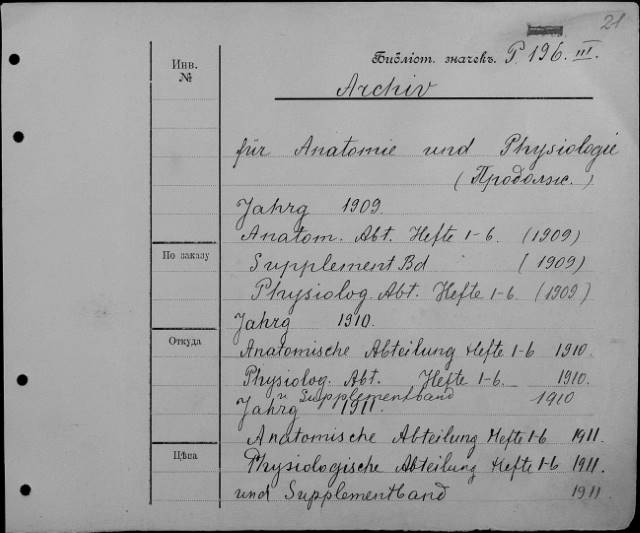 21
Инв.
№
Библіот. значекъ. P. 196. III.
Archiv
für Anatomie und Physiologie
(Продолж.)
Jahrg 1909.
Anatom. Abt. Hefte 1-6. (1909)
По заказу
Supplement Bd (1909)
Physiolog. Abt. Hefte 1-6. (1909)
Jahrg 1910.
Откуда
Anatomische Abteilung Hefte 1-6 1910.
Physiolog. Abt. Hefte 1-6. 1910.
u. Supplementband 1910
Jahrg 1911.
Anatomische Abteilung Hefte 1-6 1911.
Цѣна
Physiologische Abteilung Hefte 1-6 1911.
und Supplementband 1911